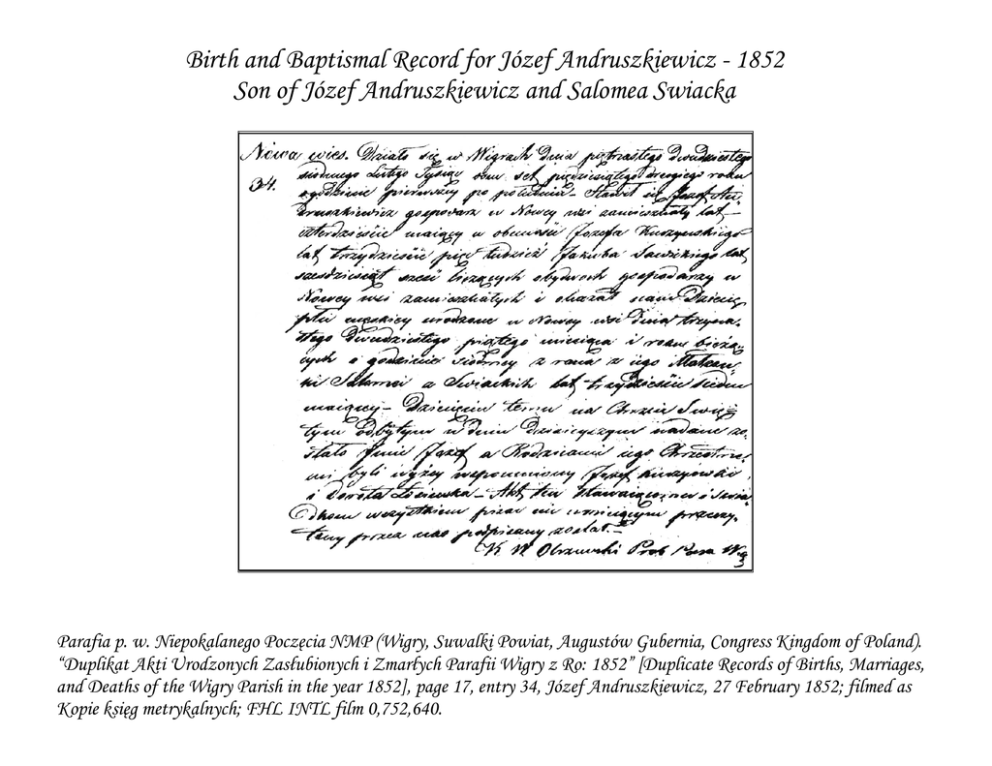 Birth and Baptismal Record for Józef Andruszkiewicz - 1852
Son of Józef Andruszkiewicz and Salomea Swiacka
Nowa wies. Działo się w Wigrach dnia piętnastego dwudziestego
34. siódmego Lutego Tysiąc osm set pięćdziesiątego drugiego roku
o godzinie pierwszey po południu. Stawił się Jozef An-
druszkiewicz gospodarz w Nowey wsi zamieszkały lat
czterdzieście maiący w obecności Jozefa Kuczynskiego
lat trzydzieście pięć tudzież Jakuba Sawickiego lat
szesdziesiąt sześć liczących obydwoch gospodarzy w
Nowey wsi zamieszkałych i okazał nam Dziecię
płci męskiey urodzone w Nowey wsi dnia
dwudziestego piątego miesiąca i roku bieżą-
cych o godzinie siódmey z rana z iego Małżon-
ki Salomei z Swiackich lat trzydzieście siedm
maiącey - Dziecięciu temu na Chrzcie Swię-
tym odbytym w dniu dzisieyszym nadane zo-
stało Imie Jozef a Rodzicami iego Chrzestne-
mi byli wyżey wspomniony Jozef
i Dorota - Akt ten stawaiącemu i swia-
dkom wszystkim pisać nie umieiącym przeczy-
tany przez nas podpisany został. -
X W Olszewski Prob Para Wig
Parafia p. w. Niepokalanego Poczęcia NMP (Wigry, Suwalki Powiat, Augustów Gubernia, Congress Kingdom of Poland).
“Duplikat Akti Urodzonych Zasłubionych i Zmarłych Parafii Wigry z Ro: 1852” [Duplicate Records of Births, Marriages,
and Deaths of the Wigry Parish in the year 1852], page 17, entry 34, Józef Andruszkiewicz, 27 February 1852; filmed as
Kopie ksiąg metrykalnych; FHL INTL film 0,752,640.